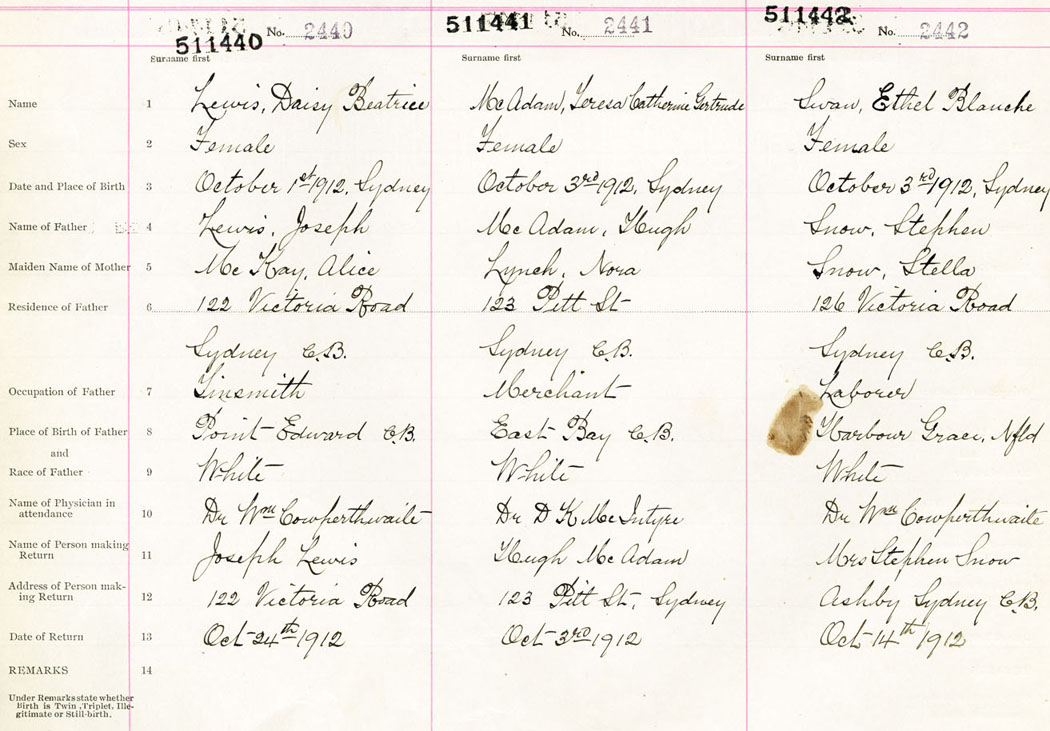 511440 No. 2440 511441 No. 2441 511442 No. 2442
Surname first Surname first Surname first
Name 1 Lewis, Daisy Beatrice Mc Adam, Teresa Catherine Gertrude Swan, Ethel Blanche
Sex 2 Female Female Female
Date and Place of Birth 3 October 1st 1912, Sydney October 3rd 1912, Sydney October 3rd 1912, Sydney
Name of Father 4 Lewis, Joseph Mc Adam, Hugh Snow, Stephen
Maiden Name of Mother 5 Mc Kay, Alice Lynch, Nora Snow, Stella
Residence of Father 6 122 Victoria Road 123 Pitt St 126 Victoria Road
Sydney C.B. Sydney C.B. Sydney C.B.
Occupation of Father 7 Tinsmith Merchant Laborer
Place of Birth of Father 8 Point Edward C.B. East Bay C.B. Harbour Grace, Nfld
and
Race of Father 9 White White White
Name of Physician in
attendance 10 Dr Wm Cowperthwaite Dr D K McIntyre Dr Wm Cowperthwaite
Name of Person making
Return 11 Joseph Lewis Hugh Mc Adam Mrs Stephen Snow
Address of Person mak-
ing Return 12 122 Victoria Road 123 Pitt St, Sydney Ashby Sydney C.B.
Date of Return 13 Oct 24th 1912 Oct 3rd 1912 Oct 14th 1912
REMARKS 14
Under Remarks state whether
Birth is Twin, Triplet, Ille-
gitimate or Still-birth.